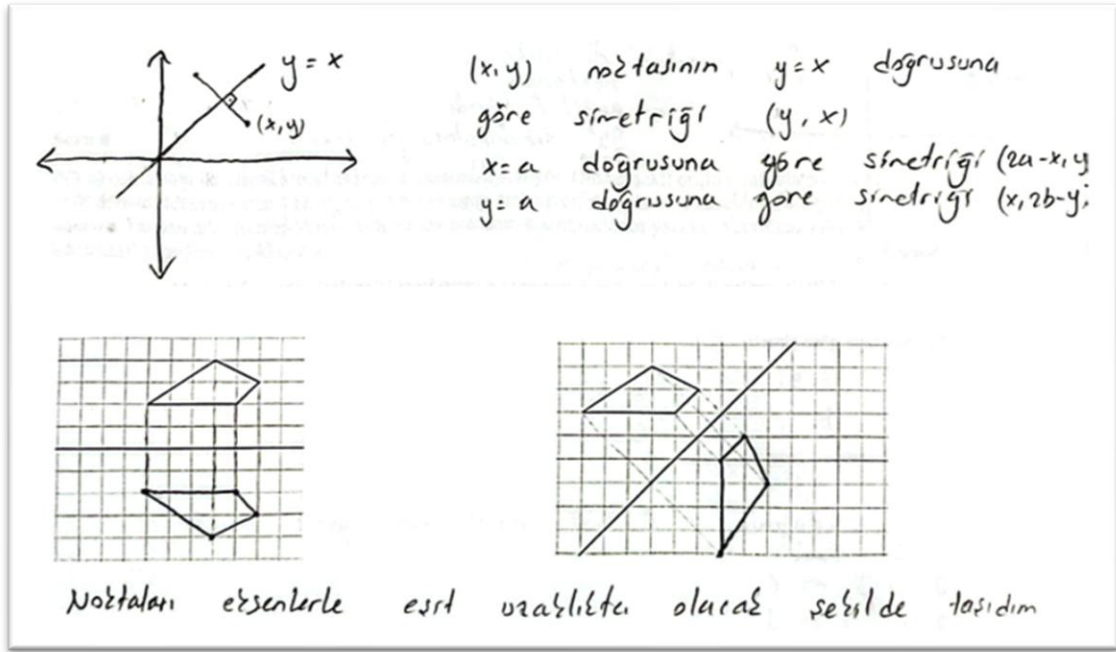 y = x
(x, y)
(x, y) noktasının y = x doğrusuna
göre simetriği (y, x)
x = a doğrusuna göre simetriği (2a-x, y
y = a doğrusuna göre simetriği (x, 2b-y)
Noktaları eksenlerle eşit uzaklıkta olacak şekilde taşıdım